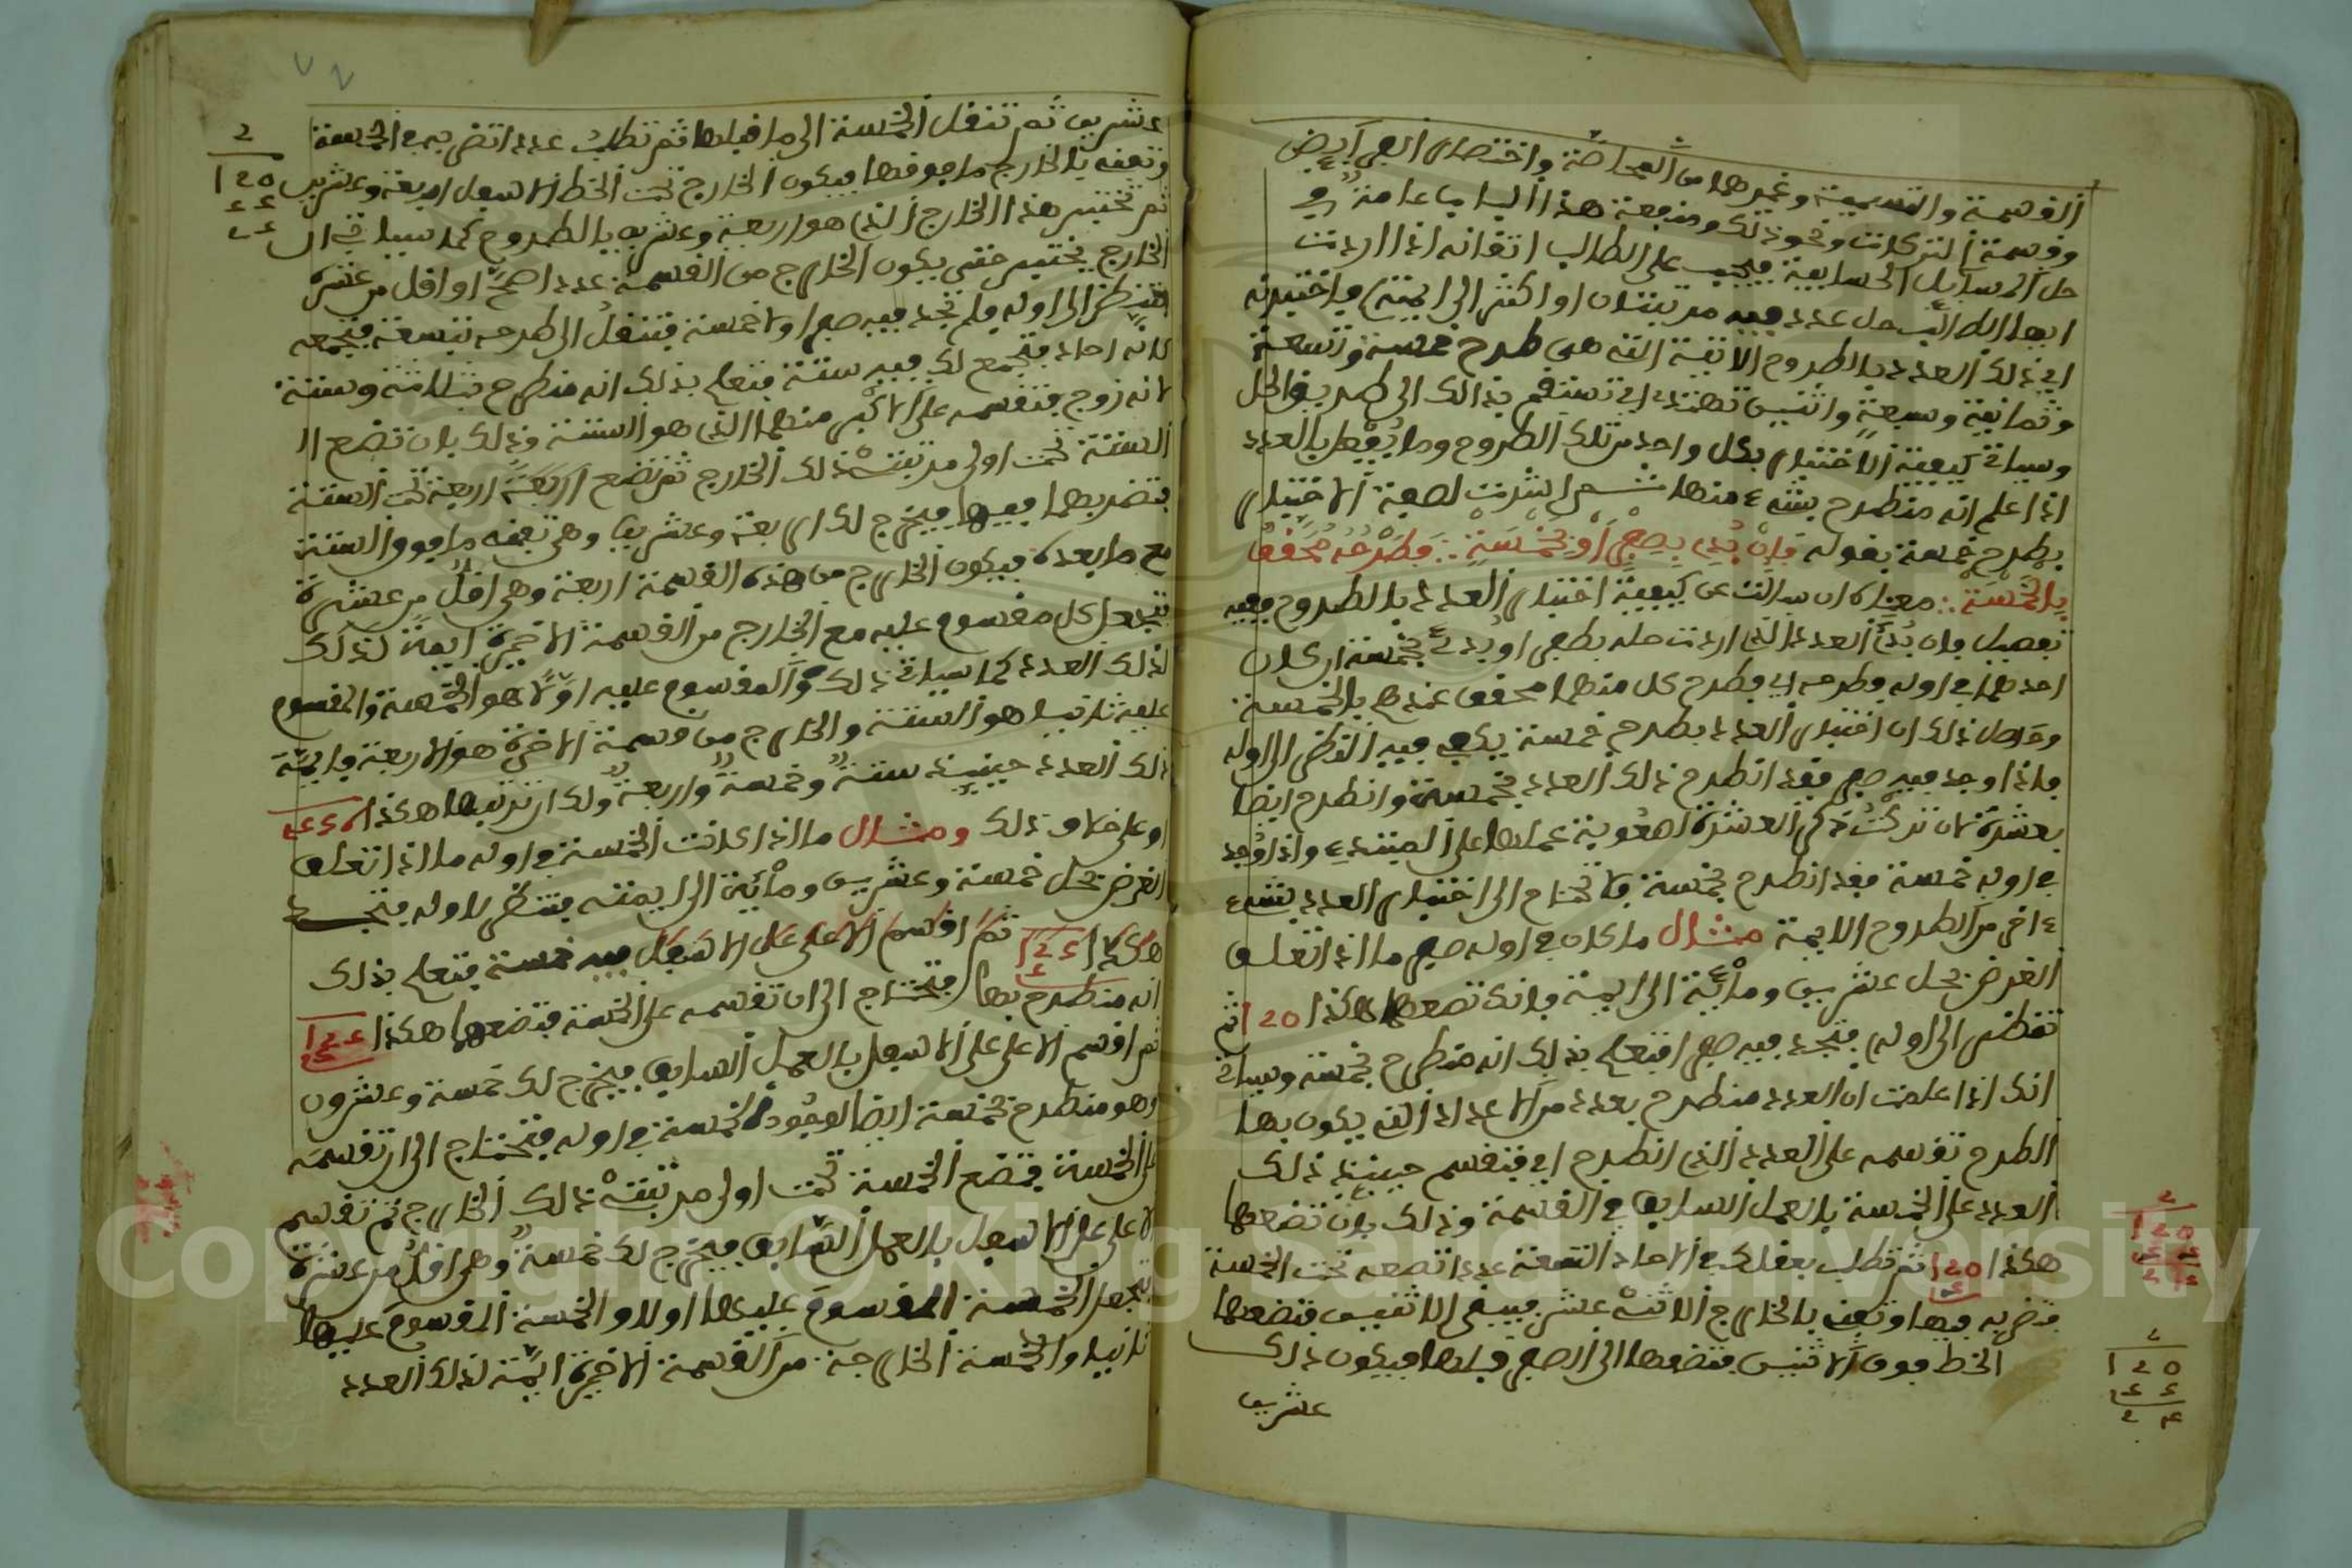 القسمة والتسمية وغيرهما من المحاصة واختصار
وقسمة التركات ونحو ذلك ومنفعة هذا الباب عامة في
حل المسايل الحسابية فيجب على الطالب اتقانه اذا اردت
ايها الطالب حل عدد فيه مرتبتان او اكثر الى ايمته فاختبرته
اي ذلك العدد بالطروح الاتية التي هي طرح خمسة وتسعة
وثمانية وسبعة واثنين تهتدي اي تستقم بذالك الى طريق الحل
وسياتي كيفية الاختبار بكل واحد من تلك الطروح وما يفعل بالعدد
اذا علم انه منطرح بشيء منها ثم اشرت لصفة الاختبار
بطرح خمسة بقوله فان بدي بصفر او بخمسة ∴ فطرحه محقق
بالخمسة ∴ معناه ان سالت عن كيفية اختبار العدد بالطروح ففيه
تفصيل فان بدئ العدد الذي اردت حله بصفر او بدئ بخمسة اي كان
احدهما في اوله فطرحه اي فطرح كل منهما محقق عندهم بالخمسة
وحاصل ذلك ان اختبار العدد بطرح خمسة يكفي فيه النظر الى اوله
فاذا وجد فيه صفر فقد انطرح ذلك العدد بخمسة وانطرح ايضا
بعشرة لان تركت ذكر العشرة لصعوبة عملها على المبتدي واذا وجد
في اوله خمسة فقد انطرح بخمسة فلا تحتاج الى اختبار العدد بشيء
ءاخر من الطروح الاتية مثال ما كان في اوله صفر ما اذا تعلق
الغرض بحل عشرين ومائة الى ايمة فانك تضعها هكذا 120 ثم
تنظر الى اوله فتجد فيه صفرا فتعلم بذلك انه منطرح بخمسة وسياتي
انك اذا علمت ان العدد منطرح بعدد من الاعداد التي يكون بها
الطرح تقسمه على العدد الذي انطرح اي فتقسم حينئذ ذلك
العدد على الخمسة بالعمل السابق في القسمة وذلك بان تضعها
هكذا 120 ثم تطلب بعقلك في الاحاد التسعة عددا تضعه تحت الخمسة
فتضربه فيها وتفني بالخارج الاثنى عشر فيبقى الاثنين فتضعها
الخط فوق الاثنين فتضعها الى الصفر قبلها فيكون ذلك
عشرين
عشرين ثم تنقل الخمسة الى ما قبلها ثم تطلب عددا تضربه في الخمسة
وتفني بالخارج ما فوقها فيكون الخارج تحت الخط الاسفل اربعة وعشرين
ثم تختبر هذا الخارج الذي هو اربعة وعشرين بالطروح كما سياتي ان
الخارج يختبر حتى يكون الخارج من القسمة عددا اصم او اقل من عشرة
فتنظر الى اوله فلم تجد فيه صفرا ولا خمسة فتنتقل الى طرحه بتسعة فتجمعه
كانه احاد فيجتمع لك فيه ستة فتعلم بذلك انه منطرح بثلاثة وستة
لانه زوج فتقسمه على الاكبر منهما الذي هو الستة وذلك بان تضع ا
الستة تحت اولى مرتبتي ذلك الخارج ثم تضع اربعة اربعة تحت الستة
فتضربهما فيها فيخرج لك اربعة وعشرين وهي تفني ما فوق الستة
مع ما بعده فيكون الخارج من هذه القسمة اربعة وهي اقل من عشرة
فتجعل كل مقسوم عليه مع الخارج من القسمة الاخيرة ايمة لذلك
لذلك العدد كما سياتي ذلك والمقسوم عليه اولا هو الخمسة والمقسوم
عليه ثانيا هو الستة والخارج من قسمة الاخيرة هو الاربعة فايمة
ذلك العدد حينئذ ستة وخمسة واربعة ولك ان ترتبها هكذا
او على خلاف ذلك ومثال ما اذا كانت الخمسة في اوله ما اذا تعلق
الغرض بحل خمسة وعشرين ومائة الى ايمته فتنظر لاوله فتجد
هكذا ثم اقسم الاعلى على الاسفل فيه خمسة فتعلم بذلك
انه منطرح بها فتحتاج الى ان تقسمه على الخمسة فتضعها هكذا
ثم اقسم الاعلى على الاسفل بالعمل السابق فيخرج لك خمسة وعشرون
وهو منطرح بخمسة ايضا لوجود الخمسة في اوله فتحتاج الى ان تقسمه
على الخمسة فتضع الخمسة تحت اولى مرتبتي ذلك الخارج ثم تقسم
الاعلى على الاسفل بالعمل السابق فيخرج لك خمسة وهي اقل من عشرة
فتجعل الخمسة المقسوم عليها اولا والخمسة المقسوم عليها
ثانيا والخمسة الخارجة من القسمة الاخيرة ايمة لذلك العدد
Copyright © King Saud University